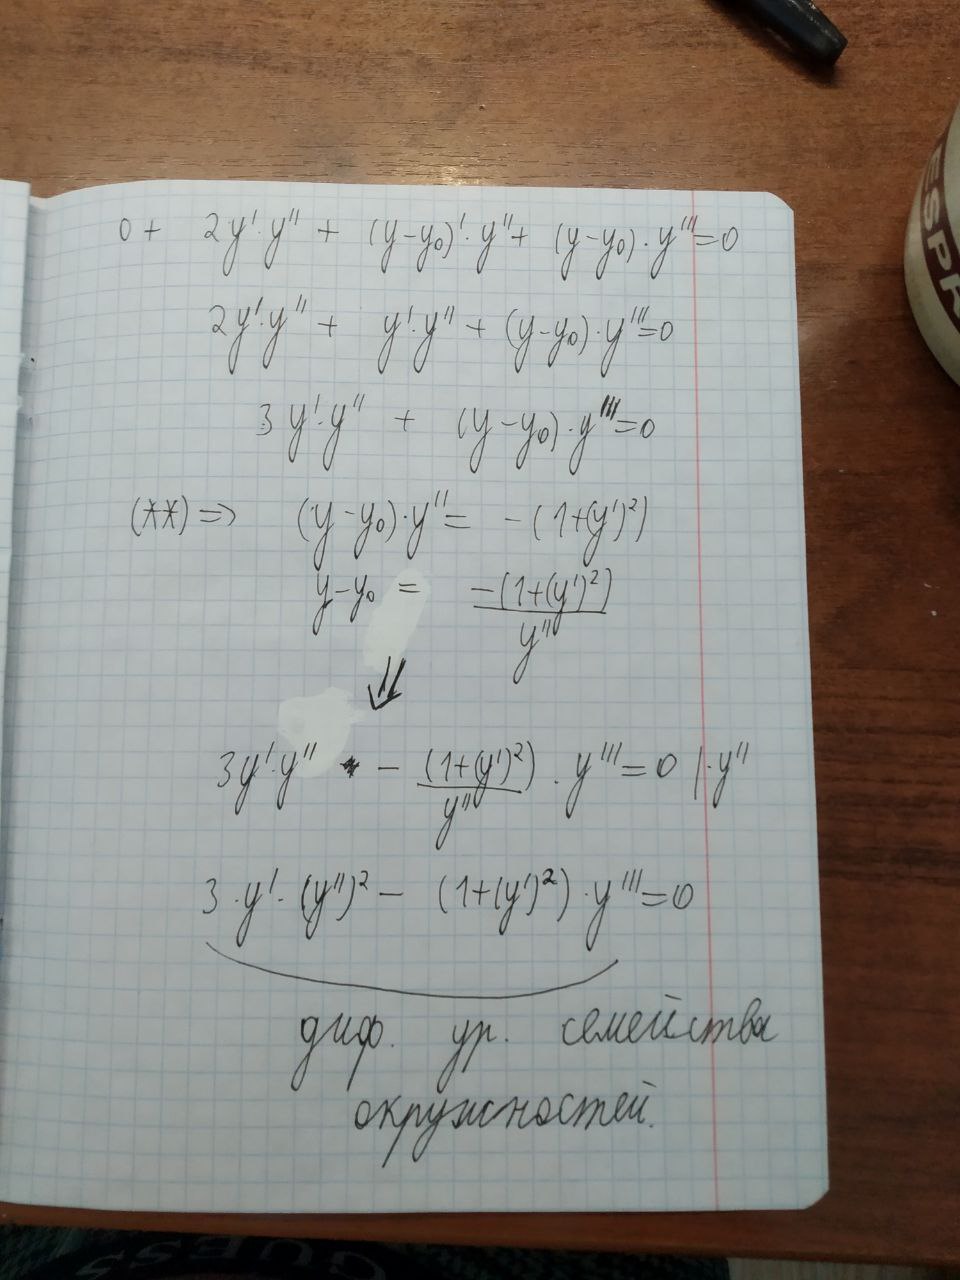 0 + 2y'·y'' + (y-y₀)'·y'' + (y-y₀)·y'''=0
2y'·y'' + y'·y'' + (y-y₀)·y'''=0
3y'·y'' + (y-y₀)·y'''=0
(**) => (y-y₀)·y'' = -(1+(y')²)
y-y₀ = -(1+(y')²)/y''
⇓
3y'·y'' - (1+(y')²)/y'' · y'''=0 |·y''
3·y'·(y'')² - (1+(y')²)·y'''=0
диф. ур. семейства
окружностей.
ESPR
GUESS